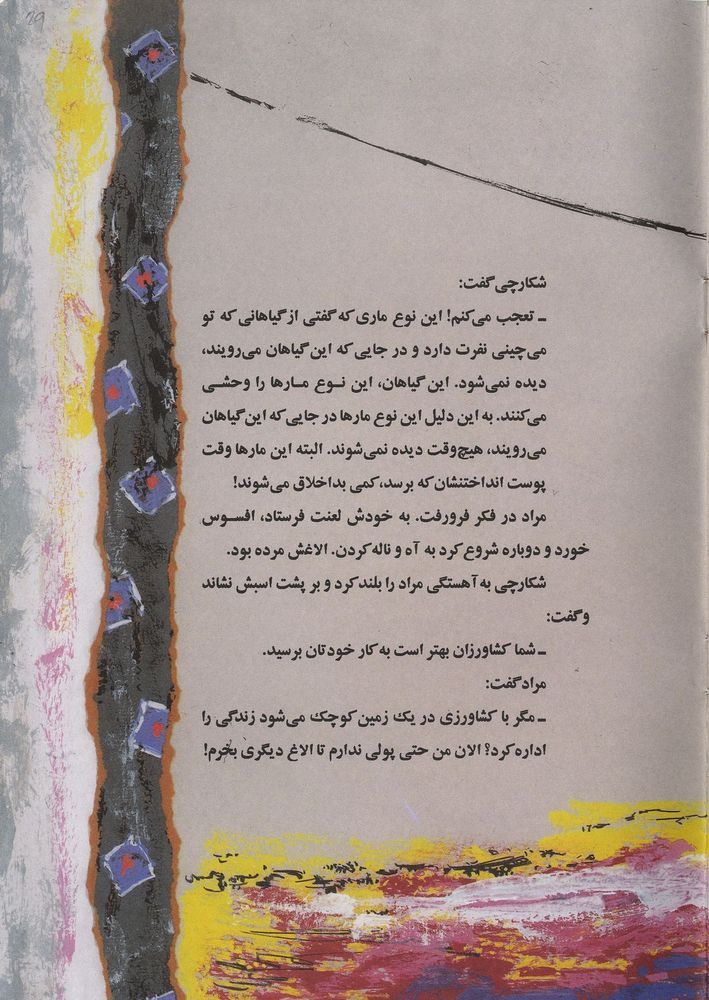 29
شکارچی گفت:
ـ تعجب می‌کنم! این نوع ماری که گفتی از گیاهانی که تو
می‌چینی نفرت دارد و در جایی که این گیاهان می‌رویند،
دیده نمی‌شود. این گیاهان، این نـوع مـارها را وحشـی
می‌کنند. به این دلیل این نوع مارها در جایی که این گیاهان
می‌رویند، هیچ‌وقت دیده نمی‌شوند. البته این مارها وقت
پوست انداختنشان که برسد، کمی بداخلاق می‌شوند!
مراد در فکر فرورفت. به خودش لعنت فرستاد، افسـوس
خورد و دوباره شروع کرد به آه و ناله کردن. الاغش مرده بود.
شکارچی به آهستگی مراد را بلند کرد و بر پشت اسبش نشاند
و گفت:
ـ شما کشاورزان بهتر است به کار خودتان برسید.
مراد گفت:
ـ مگر با کشاورزی در یک زمین کوچک می‌شود زندگی را
اداره کرد؟ الان من حتی پولی ندارم تا الاغ دیگری بخرم!